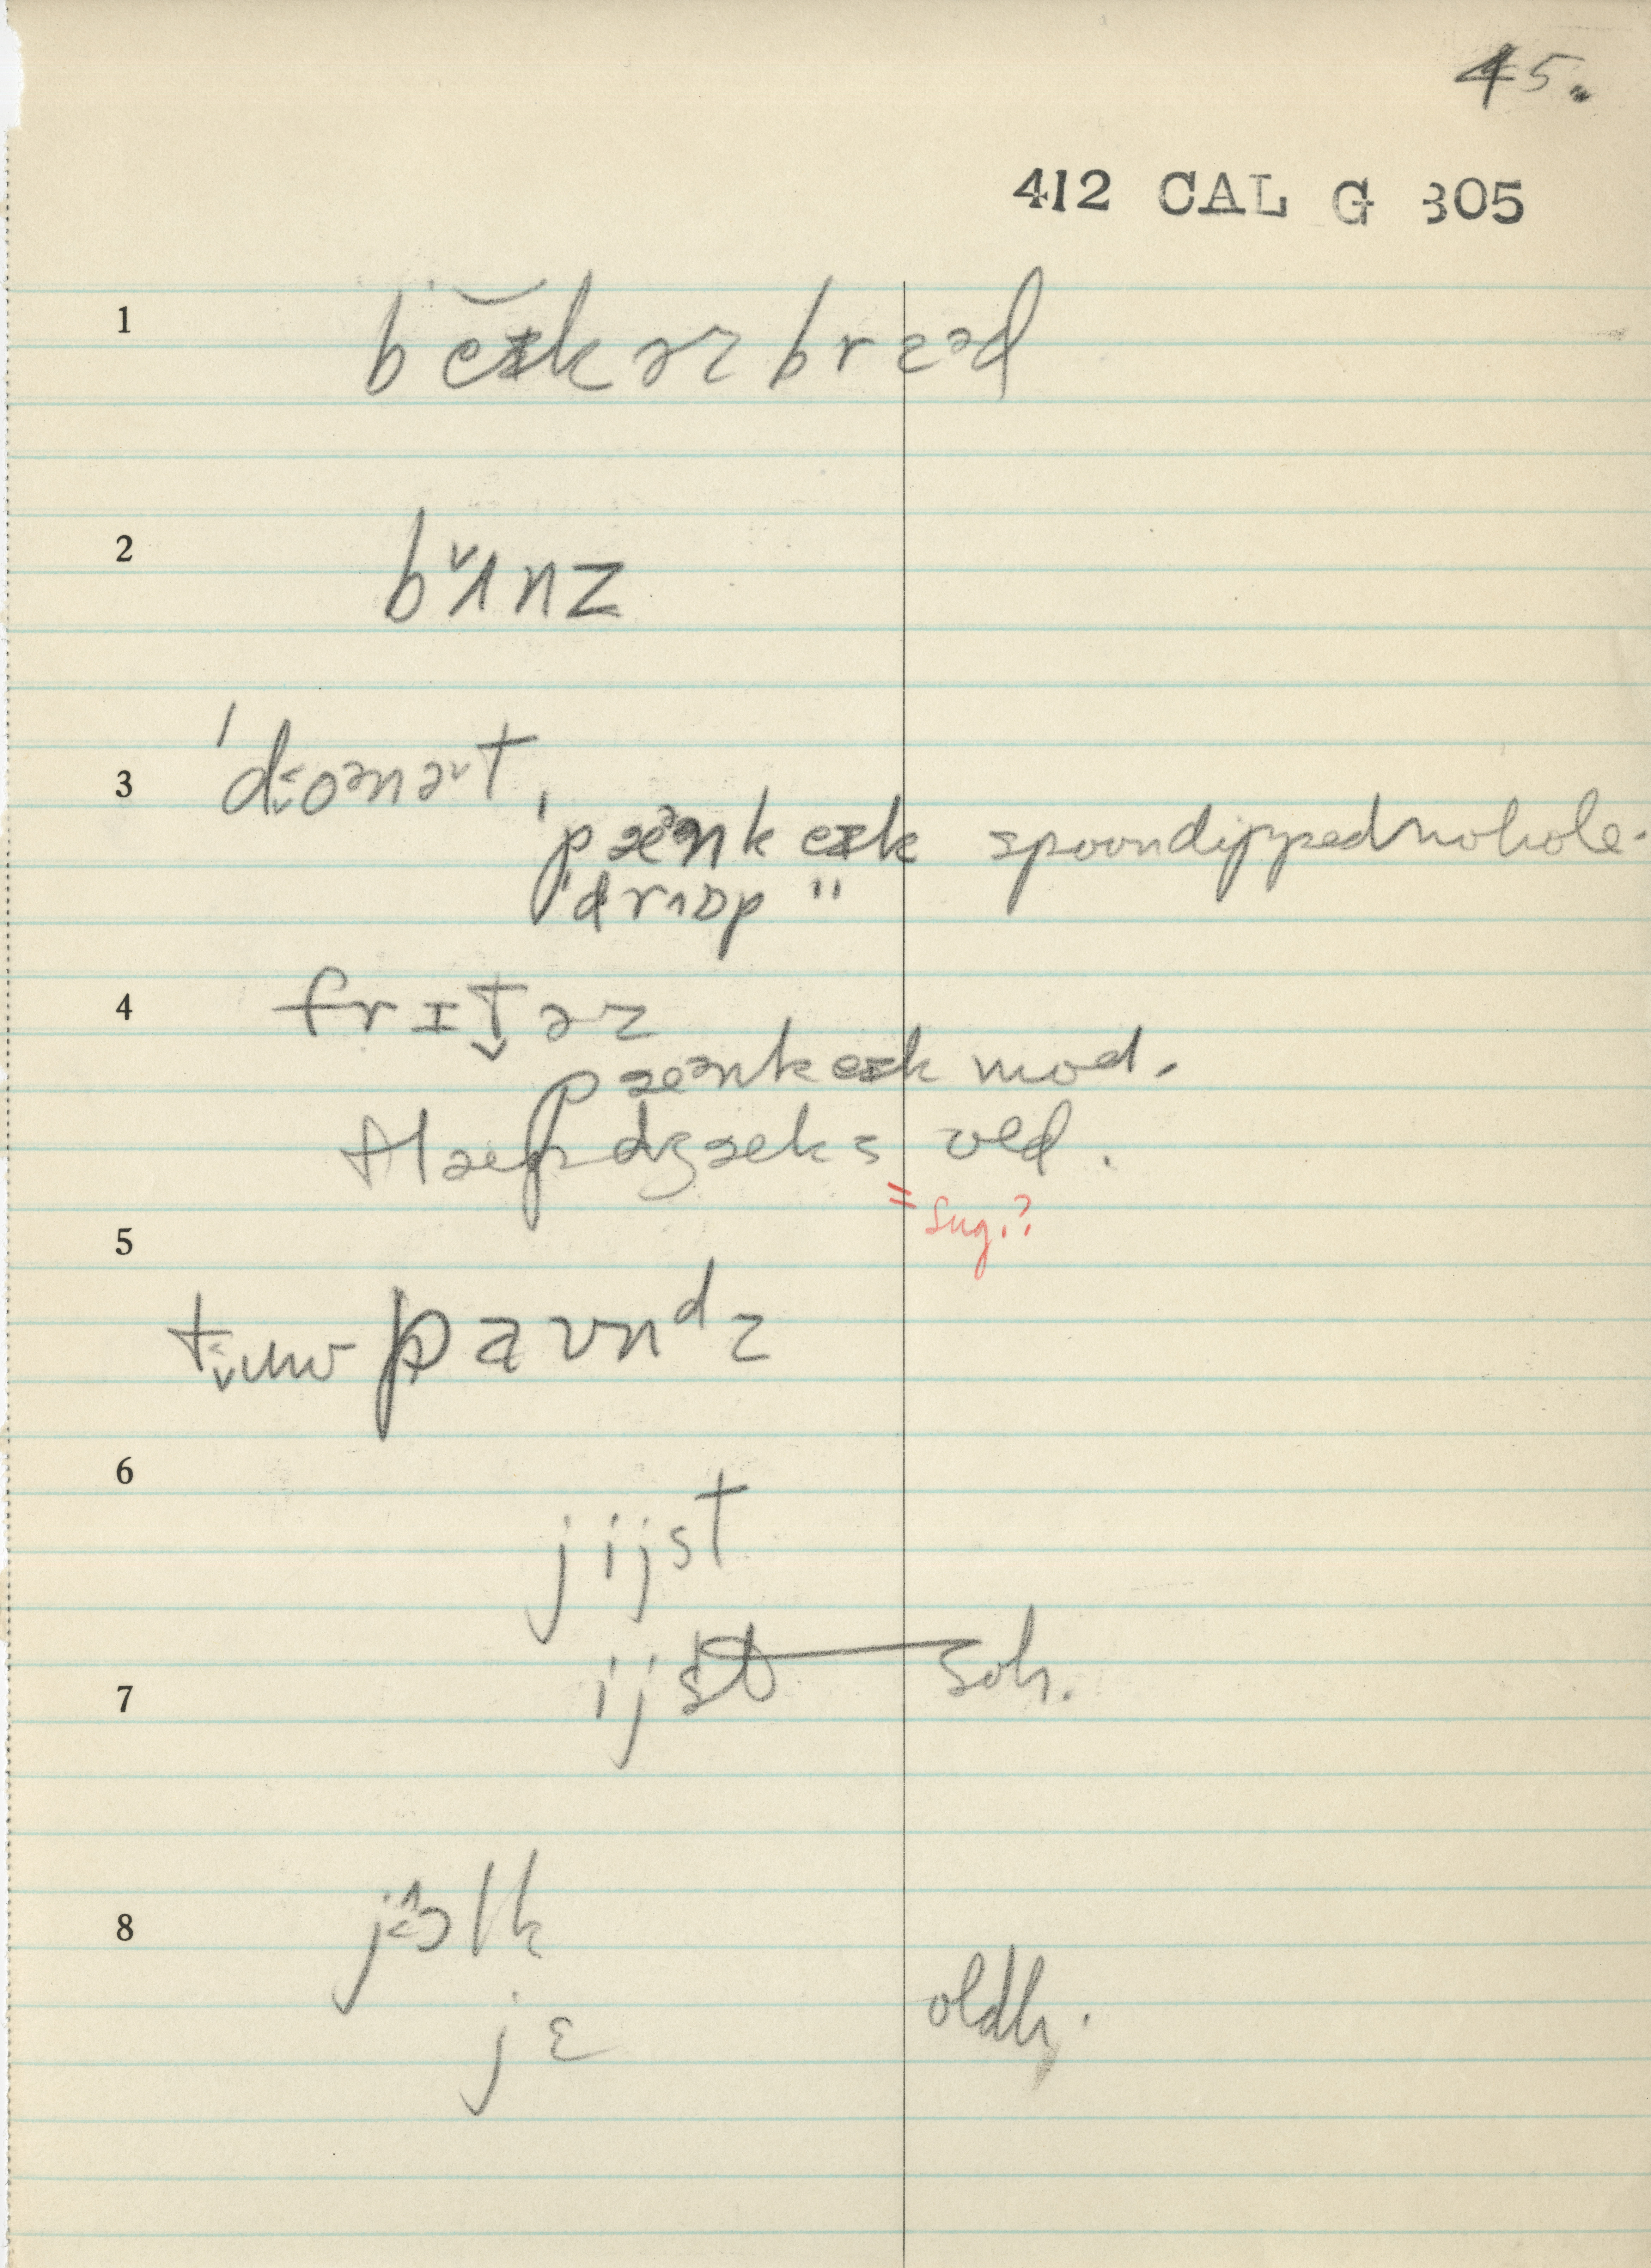 45.
412 CAL G 305
1 bĕɪkərbrɛəd
2 bʌ̌nz
3 ˈdoənət,
ˈpæənkeɪk spoondippednohole.
ˈdrɒp "
4 frɪt̬əz
pæənkeɪk mod.
flæpdʒæks old.
= sug.?
5
t̬ʉwpaʊnᵈz
6
jijst
7 ijst soh.
8 jɔ̂lk
jɛ oldh.